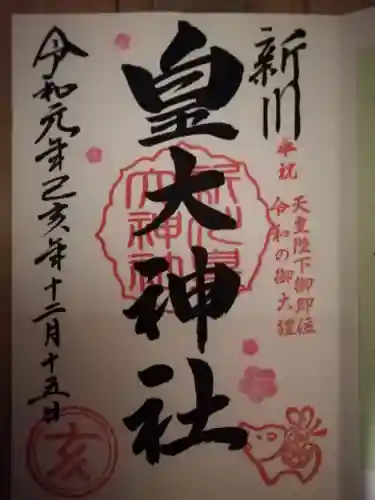 新川
奉祝
天皇陛下御即位
令和の御大禮
皇大神社
令和元年己亥年十二月十五日
亥